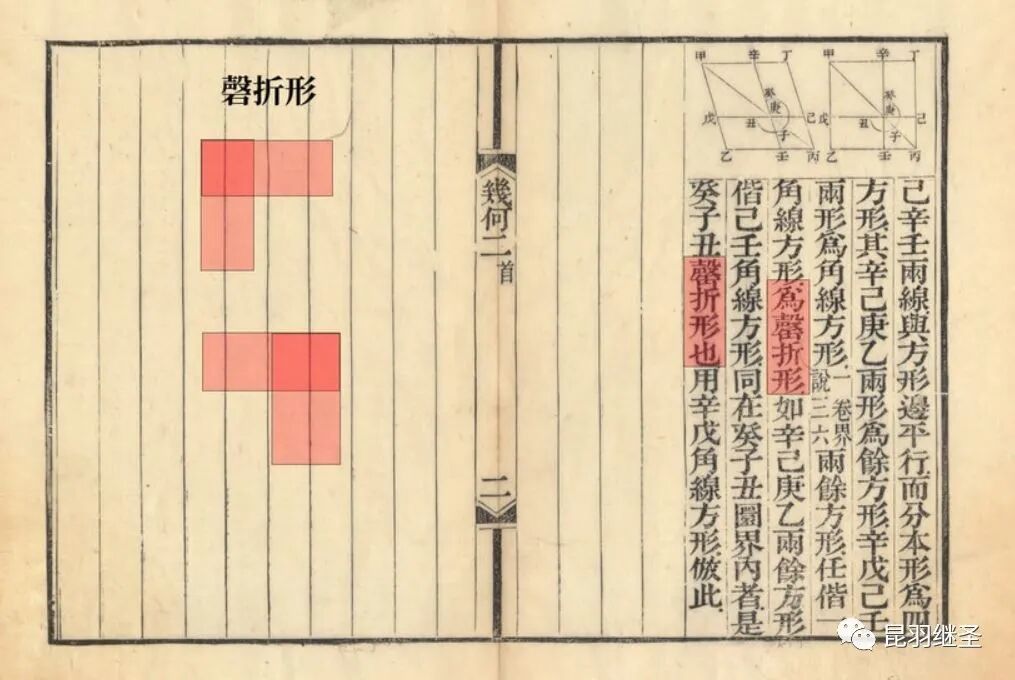 甲 辛 丁
癸
庚
戊 丑 己
子
乙 壬 丙
甲 辛 丁
癸
庚
戊 丑 己
子
乙 壬 丙
己辛壬兩線與方形邊平行而分本形爲四
方形其辛己庚乙兩形爲餘方形辛戊己壬
兩形爲角線方形一卷界說三六兩餘方形任偕一
角線方形爲磬折形如辛己庚乙兩餘方形
偕己壬角線方形同在癸子丑圜界內者是
癸子丑磬折形也用辛戊角線方形倣此
幾何二首
二
磬折形
昆羽继圣